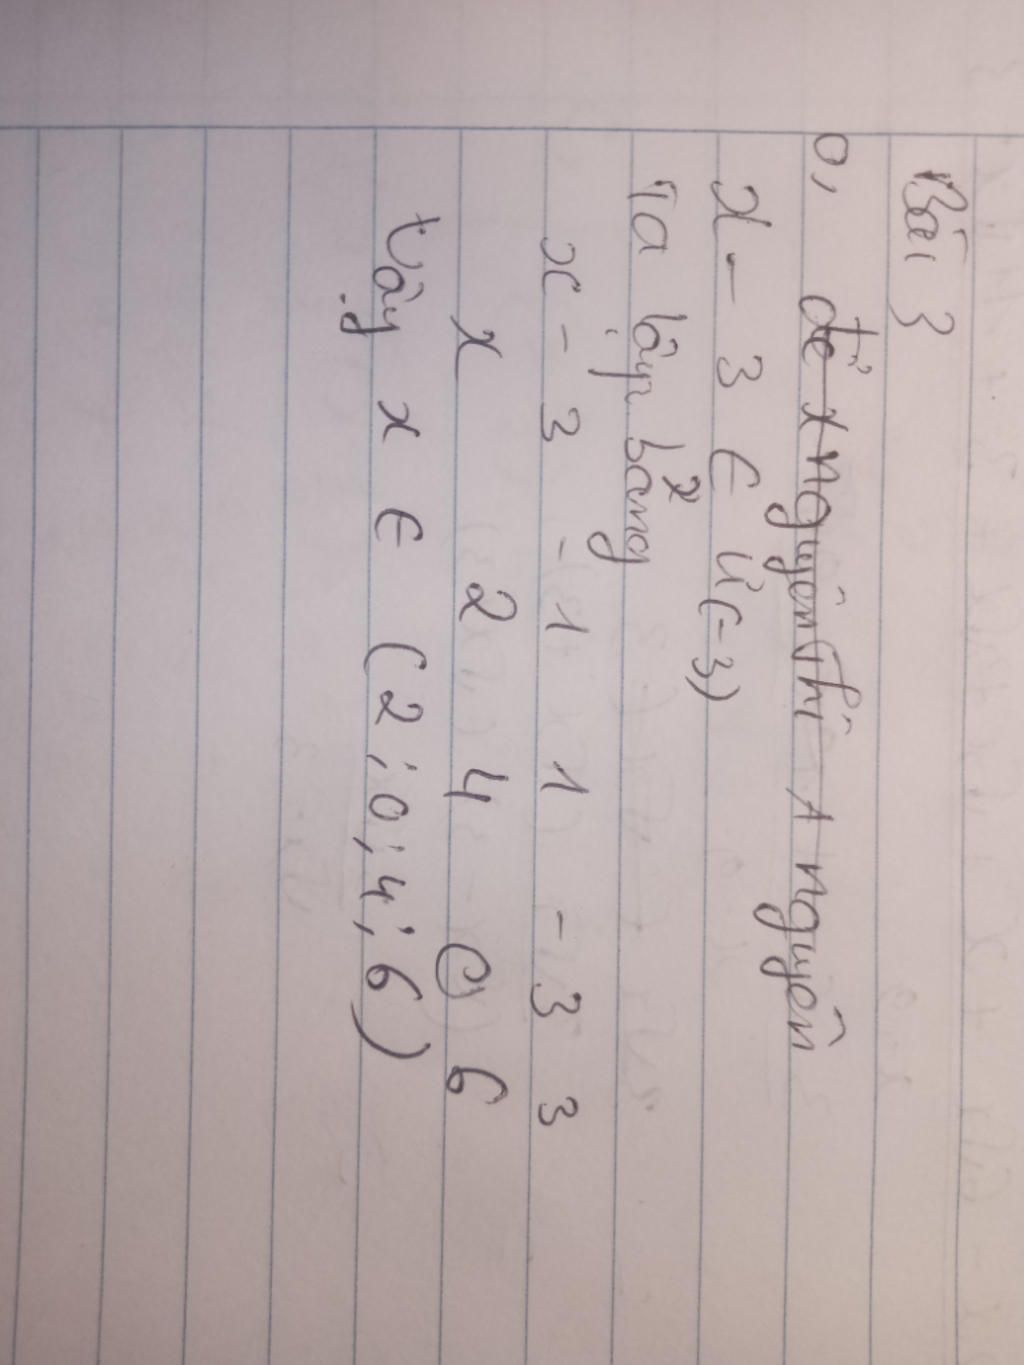 Bài 3
a, để x nguyên thì A nguyên
x - 3 ∈ Ư(-3)
Ta lập bảng
x - 3 -1 1 -3 3
x 2 4 0 6
Vậy x ∈ (2 ; 0 ; 4 ; 6)